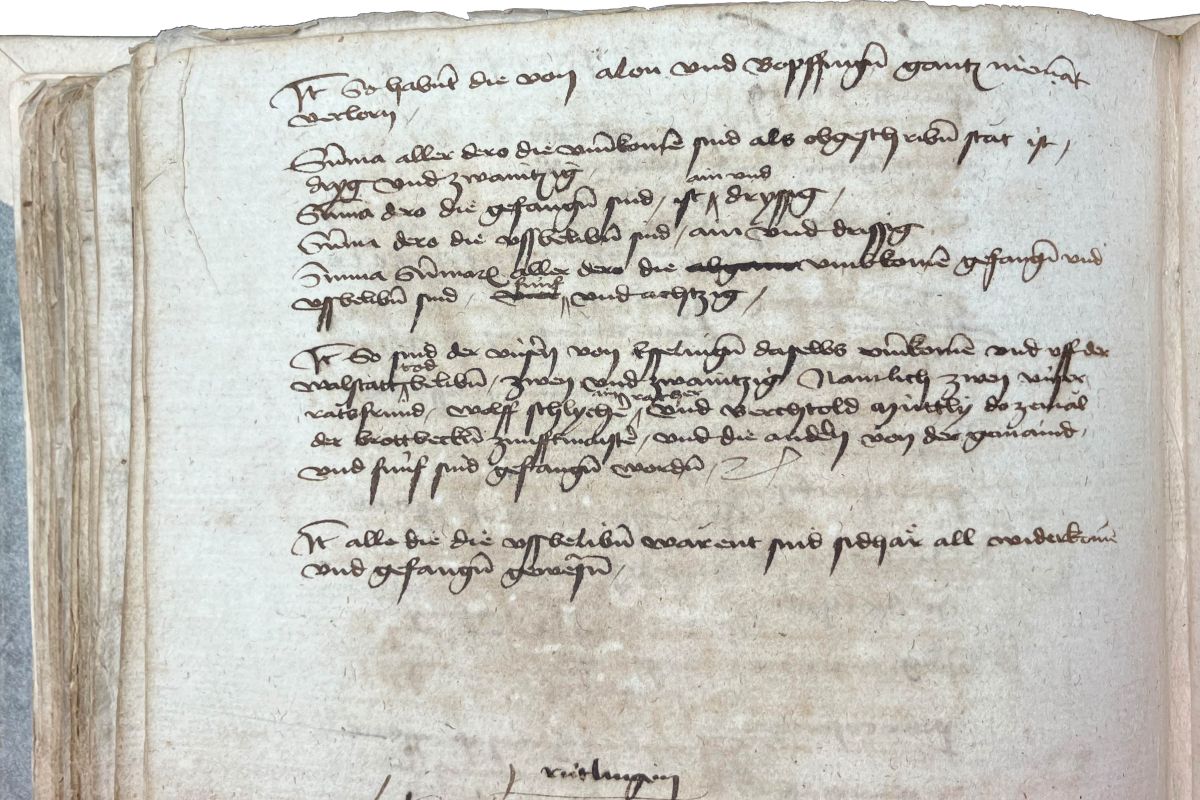 It So habent die von alon und Bopffingen gantz niemat
verlorn
Suma aller dero die umkomen sind als obgeschriben stat ist
dryg und zwaintzig
Suma dero die gefangen sind ist ain und dryssig
Suma dero die ussbeliben sind ain und drissig
Suma Sumarum aller dero die umbkomen gefangen und
ussbeliben sind fünf und achtzig
It So sind der unsern von Esselingen daselbs umkomen und uff der
walstatt tod beliben zwen und zwaintzig Namlich zwen unser
ratsfrund Wolff schlycher ain richter und Berchtold Müttly do zemal
der brottbecken zunfftmaister und die andern von der gemaind
und fünf sind gefangen worden
It alle die die ussbeliben warent sind sidhar all widerkomen
und gefangen gewesen
rütlingen